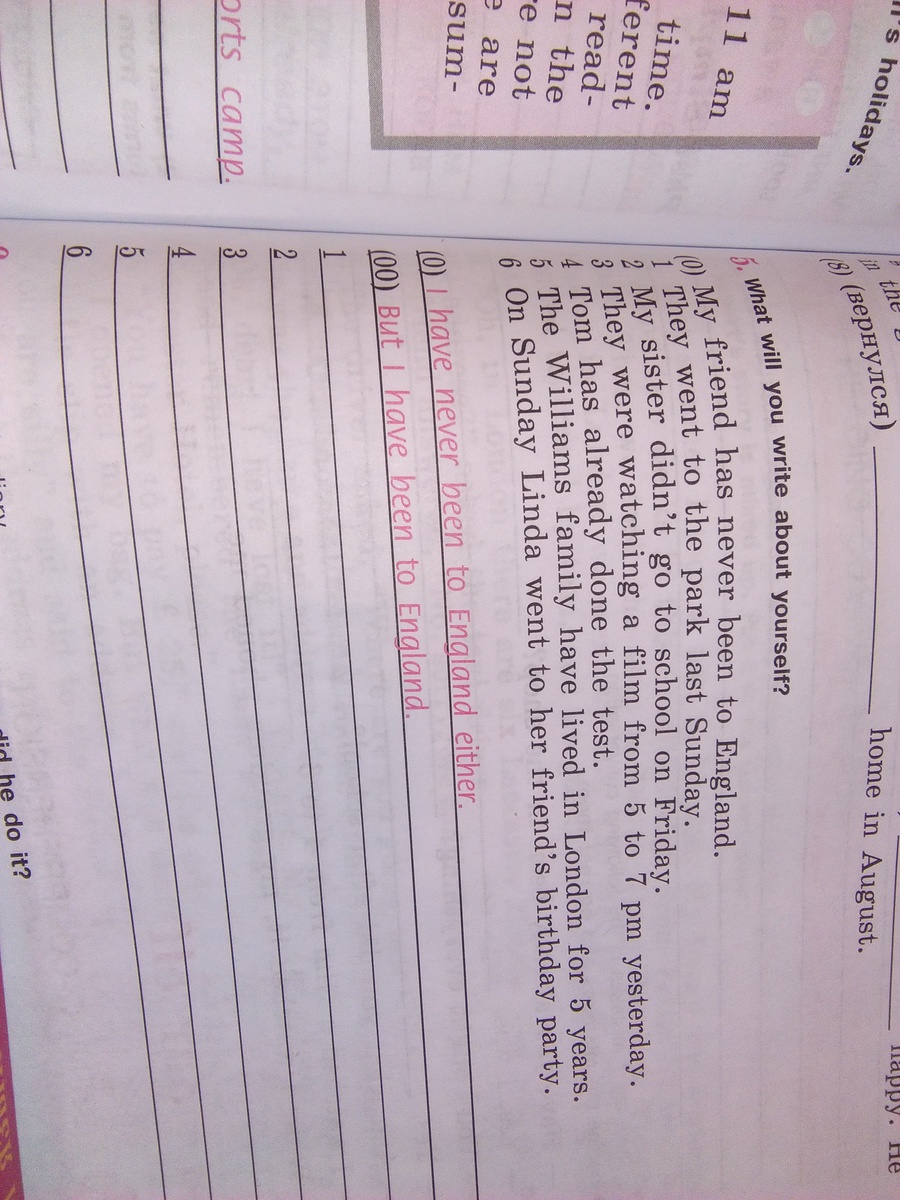 n's holidays.
11 am
time.
ferent
read-
n the
e not
e are
sum-
orts camp.
in the
happy. He
(8) (вернулся) home in August.
5. What will you write about yourself?
(0) My friend has never been to England.
1 They went to the park last Sunday.
2 My sister didn't go to school on Friday.
3 They were watching a film from 5 to 7 pm yesterday.
4 Tom has already done the test.
5 The Williams family have lived in London for 5 years.
6 On Sunday Linda went to her friend's birthday party.
(0) I have never been to England either.
(00) But I have been to England.
1
2
3
4
5
6
did he do it?